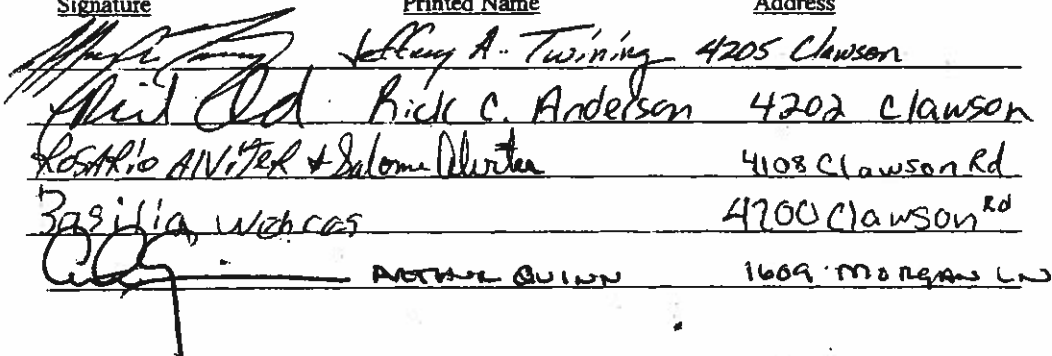 Signature Printed Name Address
Jeffrey A. Twining 4205 Clawson
Rick C. Anderson 4202 Clawson
ROSARIO AlViTER + Salome Alviter 4108 Clawson Rd
Basilia 4200 Clawson Rd
ARTHUR QUINN 1609 MORGAN LN